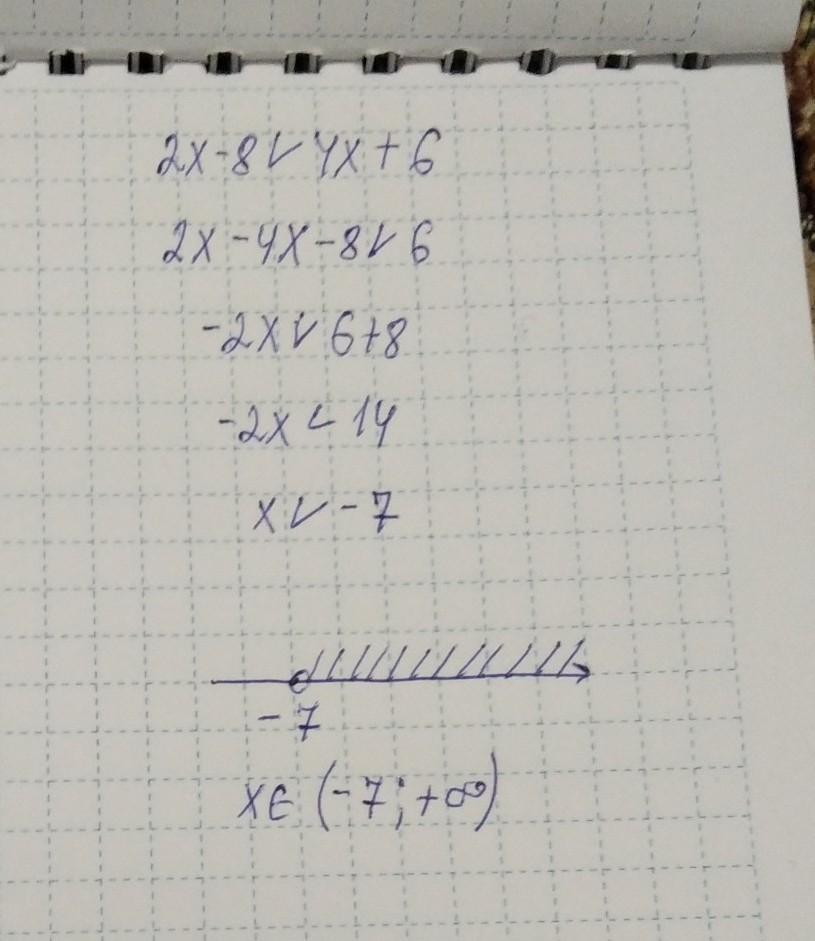 2x-8<4x+6
2x-4x-8<6
-2x<6+8
-2x<14
x<-7
-7
x∈(-7;+∞)